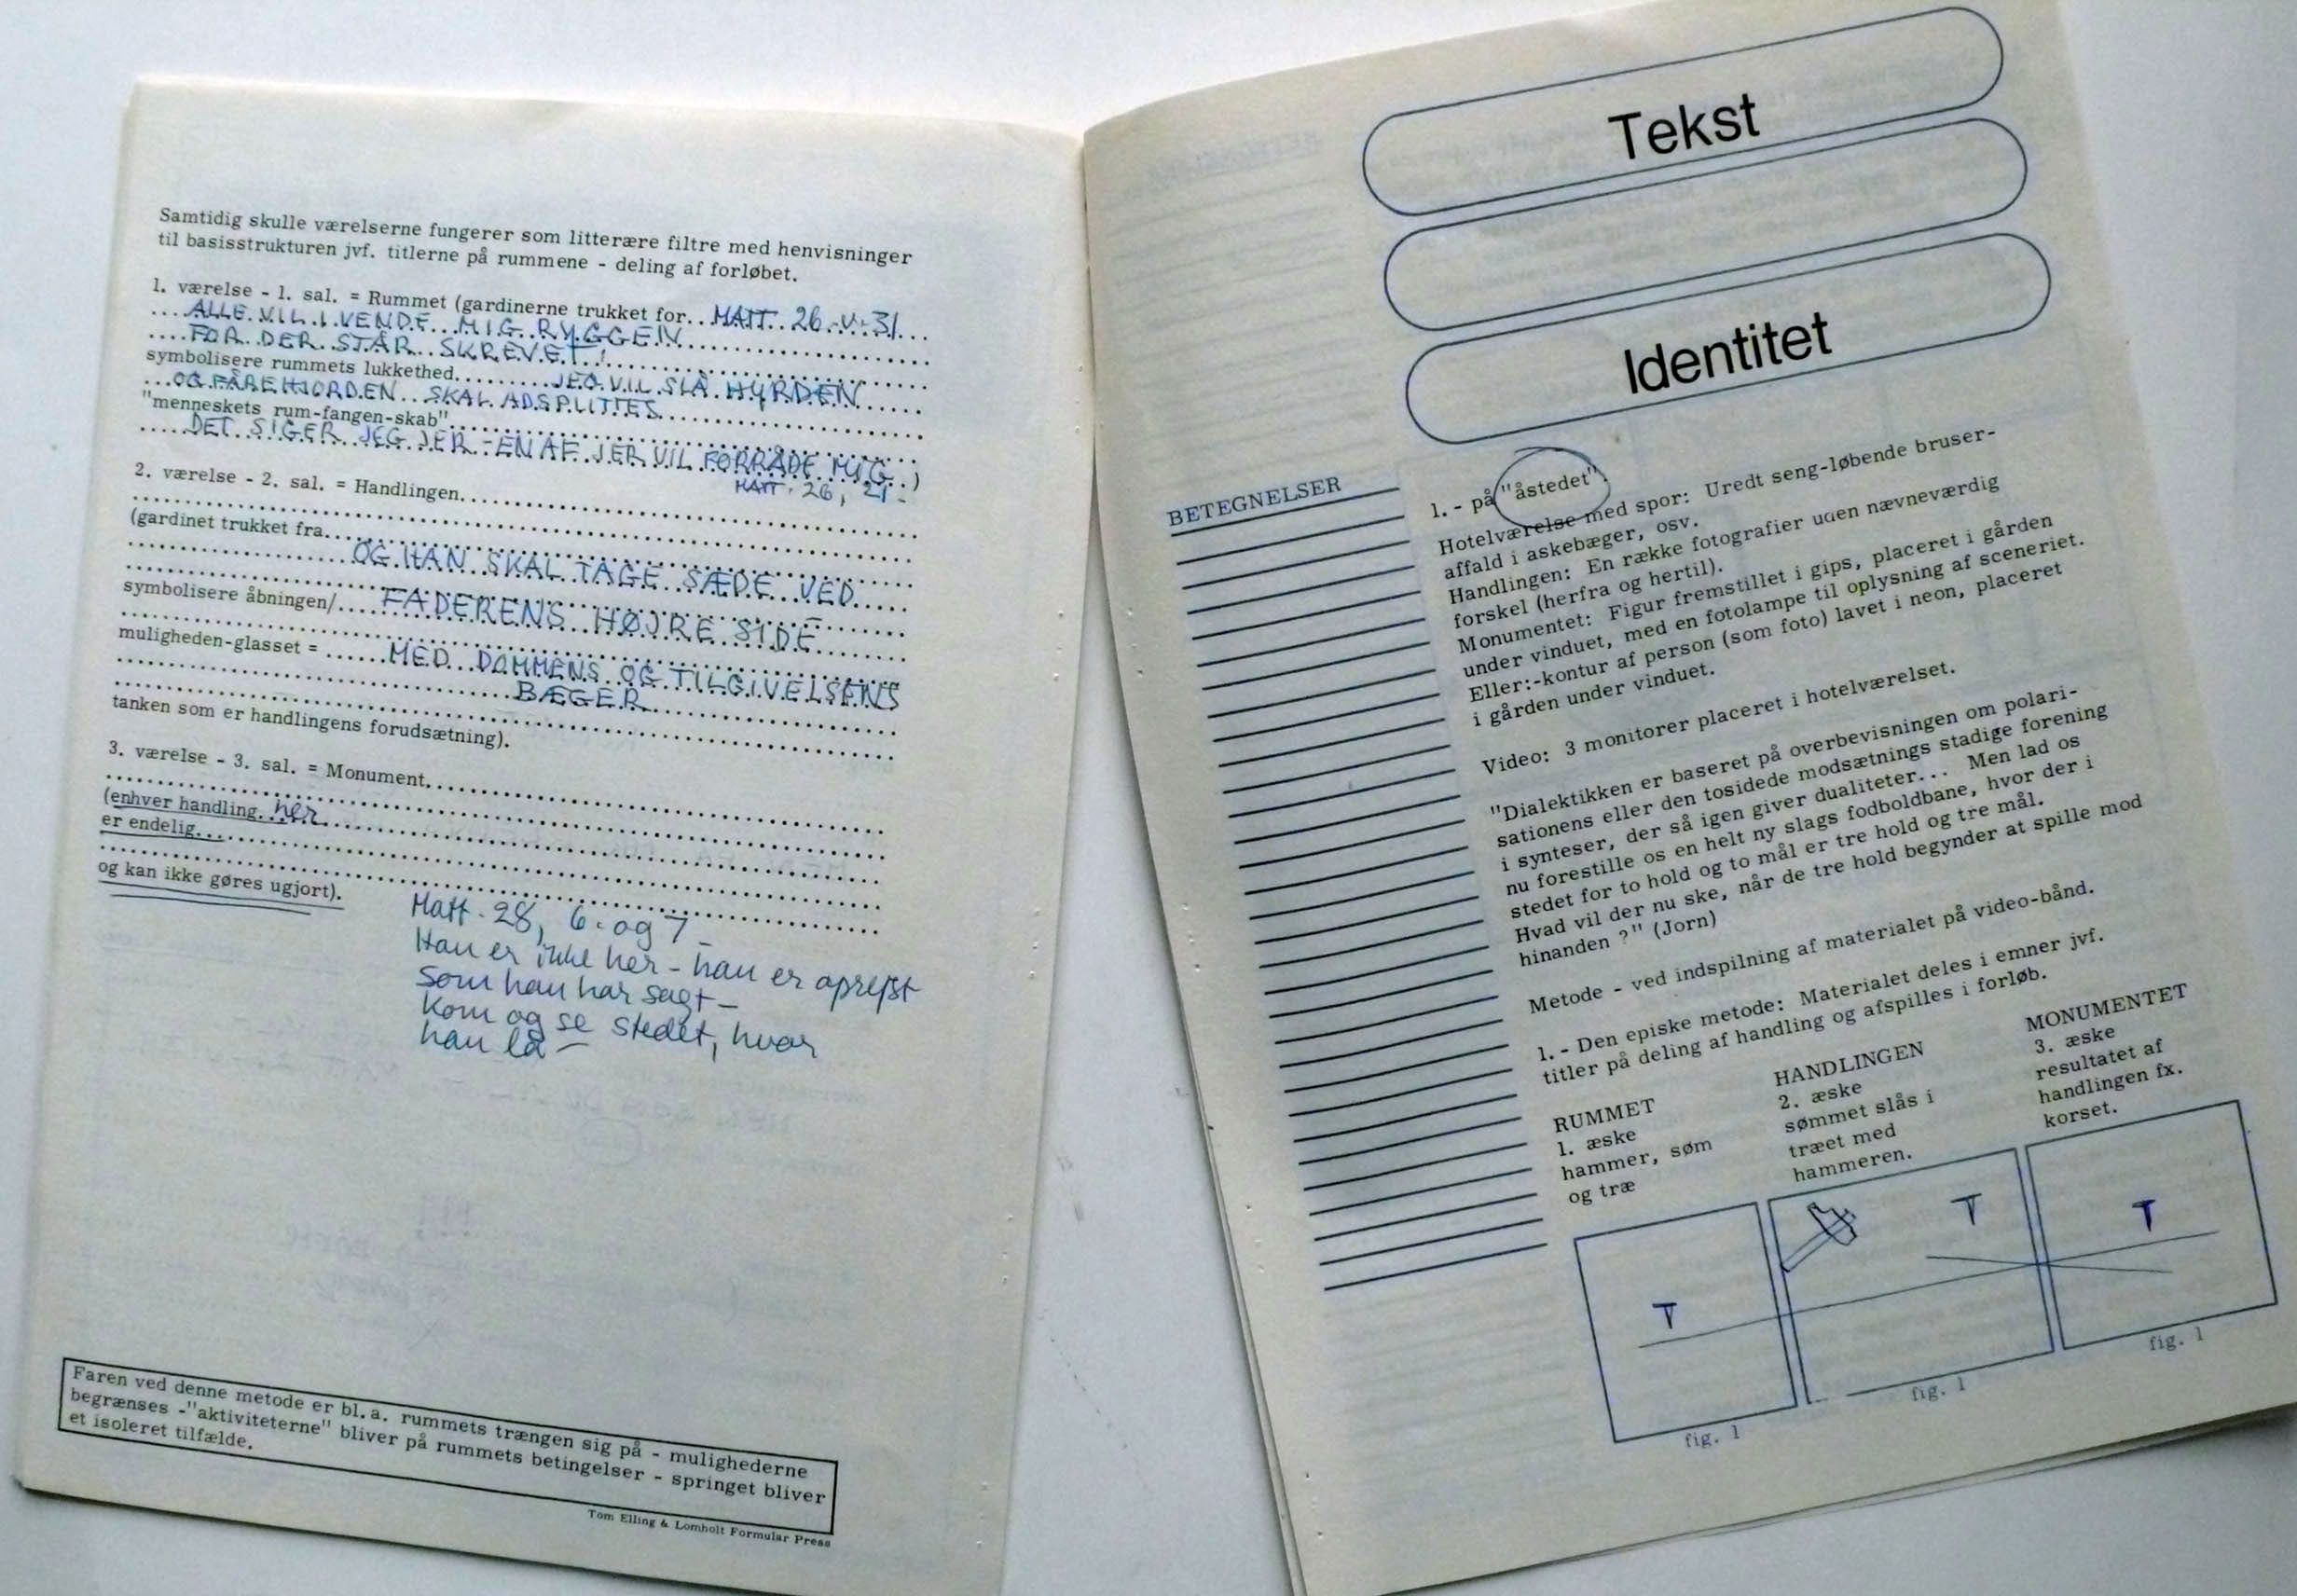 Samtidig skulle værelserne fungerer som litterære filtre med henvisninger
til basisstrukturen jvf. titlerne på rummene - deling af forløbet.
1. værelse - 1. sal. = Rummet (gardinerne trukket for.. MATT. 26.V.31...
...ALLE VIL I VENDE MIG RYGGEN...
....FOR DER STÅR SKREVET!...
symbolisere rummets lukkethed........JEG VIL SLÅ HYRDEN.....
...OG FÅREHJORDEN SKAL ADSPLITTES...
"menneskets rum-fangen-skab"...
.....DET SIGER JEG JER - EN AF JER VIL FORRÅDE MIG..)
MATT. 26, 21 -
2. værelse - 2. sal. = Handlingen...
(gardinet trukket fra...
...OG HAN SKAL TAGE SÆDE VED.....
symbolisere åbningen/....FADERENS HØJRE SIDE........
muligheden-glasset = ......MED DOMMENS OG TILGIVELSENS
...BÆGER...
tanken som er handlingens forudsætning).
3. værelse - 3. sal. = Monument...
(enhver handling..her...
er endelig...
og kan ikke gøres ugjort).
Matt. 28, 6. og 7 -
Han er ikke her - han er oprejst
som han har sagt -
Kom og se stedet, hvor
han lå -
Faren ved denne metode er bl.a. rummets trængen sig på - mulighederne
begrænses -"aktiviteterne" bliver på rummets betingelser - springet bliver
et isoleret tilfælde.
Tom Elling & Lomholt Formular Press
Tekst
Identitet
BETEGNELSER
1. - på "åstedet".
Hotelværelse med spor: Uredt seng-løbende bruser-
affald i askebæger, osv.
Handlingen: En række fotografier uden nævneværdig
forskel (herfra og hertil).
Monumentet: Figur fremstillet i gips, placeret i gården
under vinduet, med en fotolampe til oplysning af sceneriet.
Eller:-kontur af person (som foto) lavet i neon, placeret
i gården under vinduet.
Video: 3 monitorer placeret i hotelværelset.
"Dialektikken er baseret på overbevisningen om polari-
sationens eller den tosidede modsætnings stadige forening
i synteser, der så igen giver dualiteter... Men lad os
nu forestille os en helt ny slags fodboldbane, hvor der i
stedet for to hold og to mål er tre hold og tre mål.
Hvad vil der nu ske, når de tre hold begynder at spille mod
hinanden ?" (Jorn)
Metode - ved indspilning af materialet på video-bånd.
1. - Den episke metode: Materialet deles i emner jvf.
titler på deling af handling og afspilles i forløb.
RUMMET
1. æske
hammer, søm
og træ
HANDLINGEN
2. æske
sømmet slås i
træet med
hammeren.
MONUMENTET
3. æske
resultatet af
handlingen fx.
korset.
fig. 1
fig. 1
fig. 1